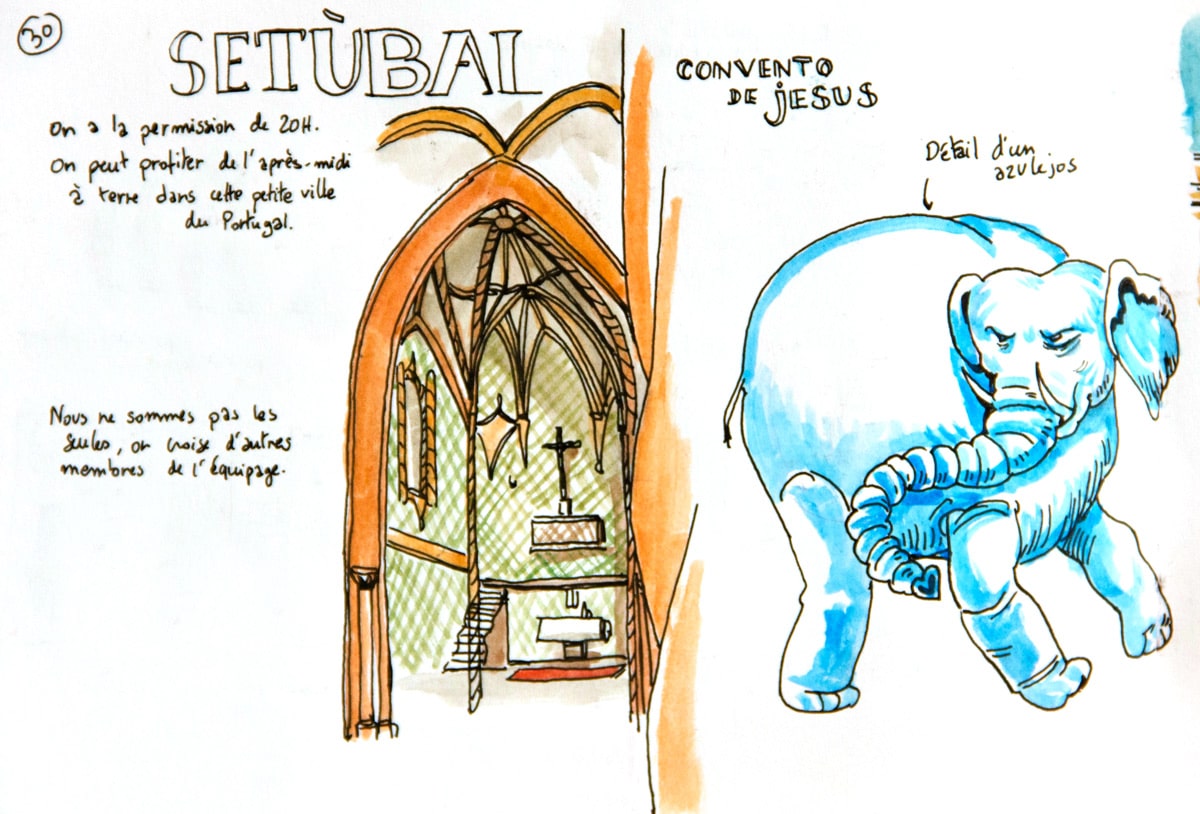 30
SETÙBAL
On a la permission de 20H.
On peut profiter de l'après-midi
à terre dans cette petite ville
du Portugal.
Nous ne sommes pas les
seules, on croise d'autres
membres de l'équipage.
CONVENTO
DE jESUS
Détail d'un
azulejos